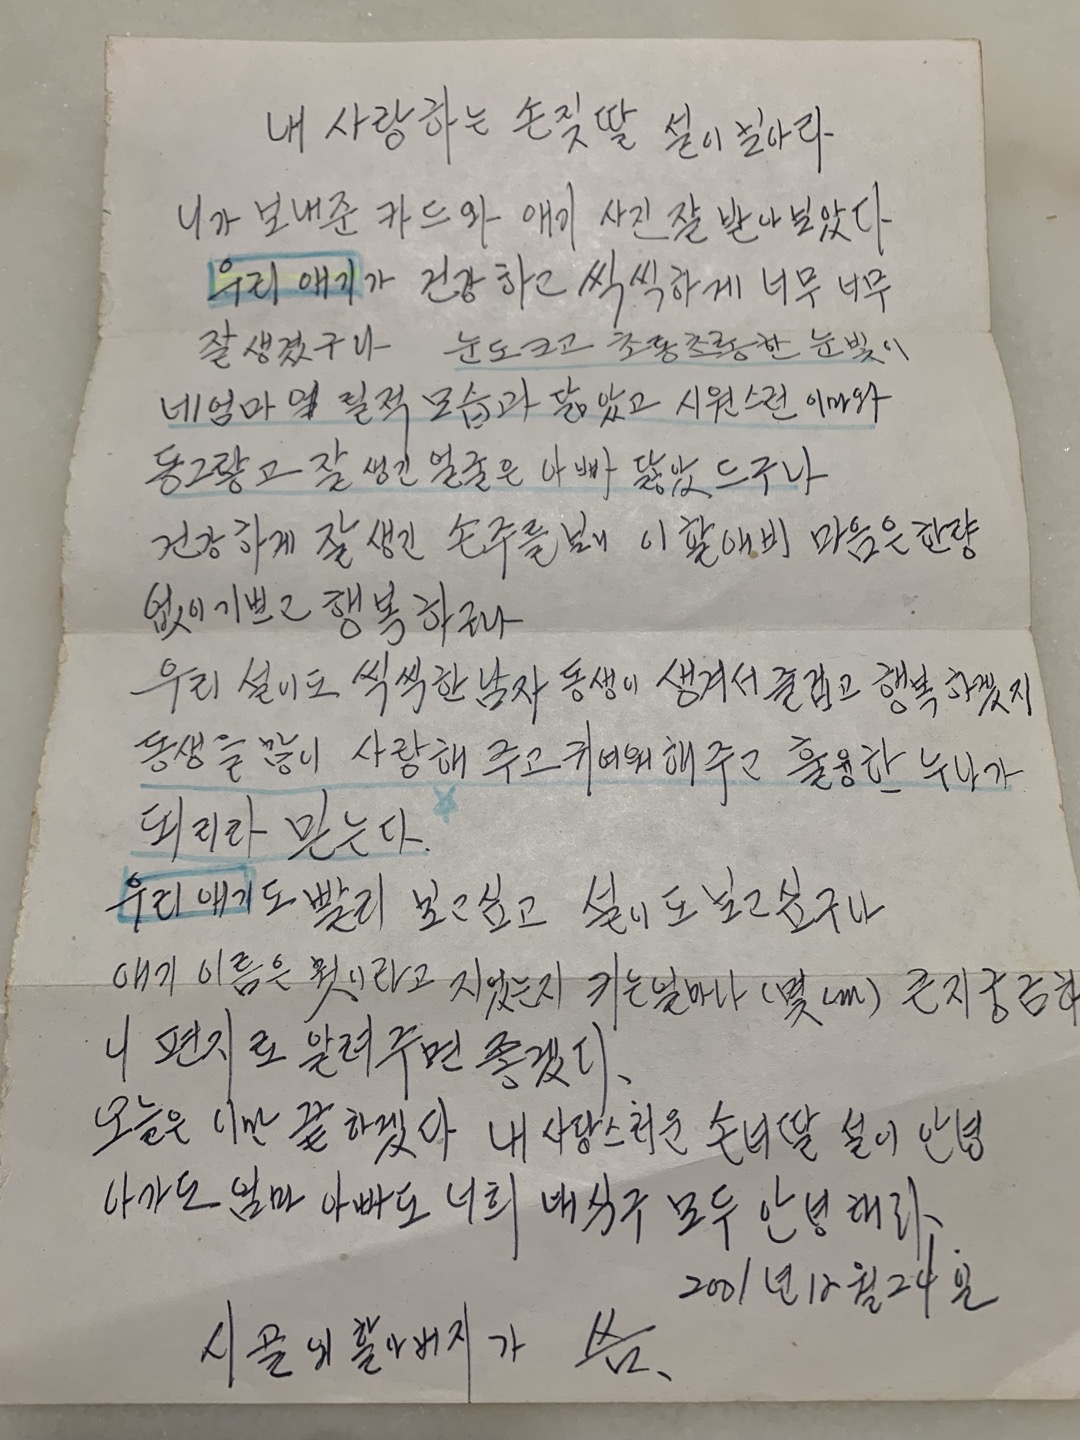 내 사랑하는 손짖딸 설이 보아라
니가 보내준 카드와 애기 사진 잘 받아보았다
우리 애기가 건강하고 씩씩하게 너무 너무
잘생겼구나 눈도크고 초롱초롱한 눈빛이
네엄마 릴적 모습과 닮았고 시원스런 이마와
동그랗고 잘 생긴 얼굴은 아빠 닮았드구나
건강하게 잘 생긴 손주를 보니 이 할애비 마음은 한량
없이 기쁘고 행복하구나
우리 설이도 씩씩한 남자 동생이 생겨서 즐겁고 행복하겠지
동생을 많이 사랑해 주고 귀여워해주고 훌융한 누나가
되리라 믿는다.
우리 애기도 빨리 보고싶고 설이도 보고싶구나
애기 이름은 뭣이라고 지었는지 키는얼마나 (몇cm) 큰지궁금하
니 편지로 알려주면 좋겠다.
오늘은 이만 끝하겠다 내 사랑스러운 손녀딸 설이 안녕
아가도 엄마 아빠도 너희 네식구 모두 안녕해라.
2001년 12월 24일
시골 외 할아버지가 씀.